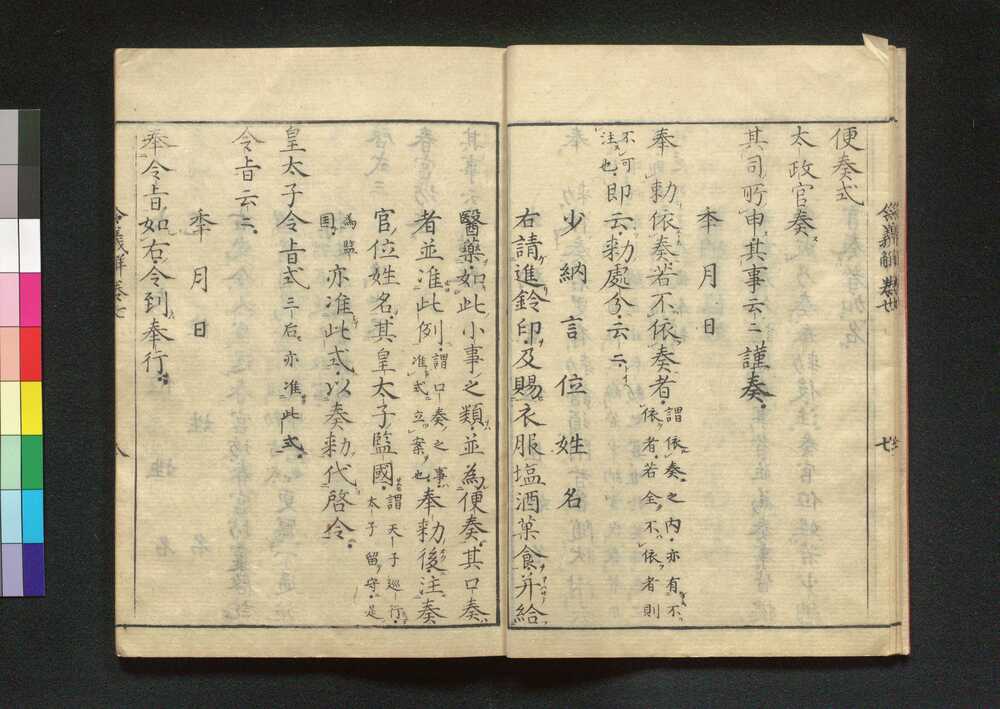 便奏式
太政官奏
其司所申其事云々謹奏
年月日
奉勅依奏若不依奏者謂依奏之内亦有不依者若全不依者則
不可注也即云勅處分云々
少納言位姓名
右請進鈴印及賜衣服塩酒菓食并給
醫藥如此小事之類並為便奏其口奏
者並准此例謂口奏之事准式立案也奉勅後注奏
官位姓名其皇太子監國謂天子巡行太子留守是
為監國亦准此式以奏勅代啓令
皇太子令旨式三后亦准此式
令旨云々
年月日
奉令旨如右令到奉行
令義解卷七
七
八